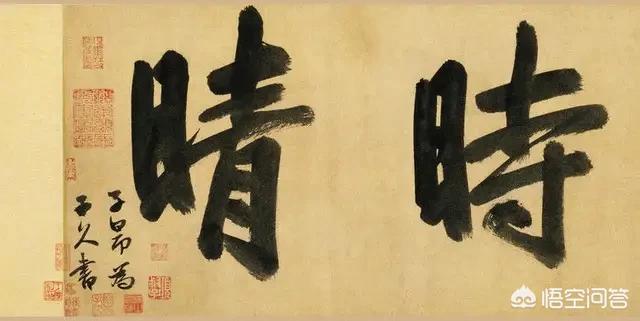 時晴
子昂為
子久書
悟空问答